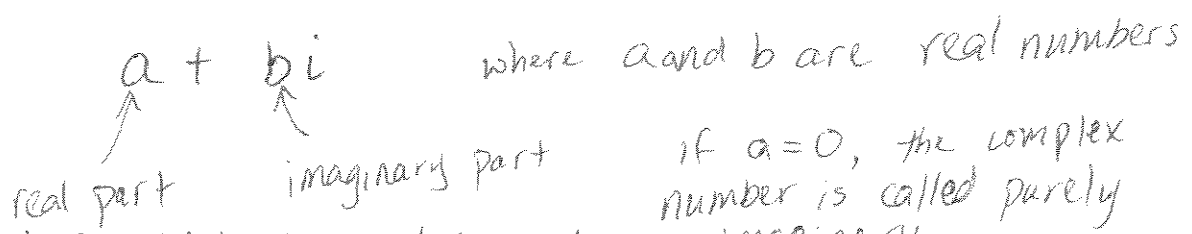 a + bi where a and b are real numbers
real part imaginary part if a=0, the complex
number is called purely